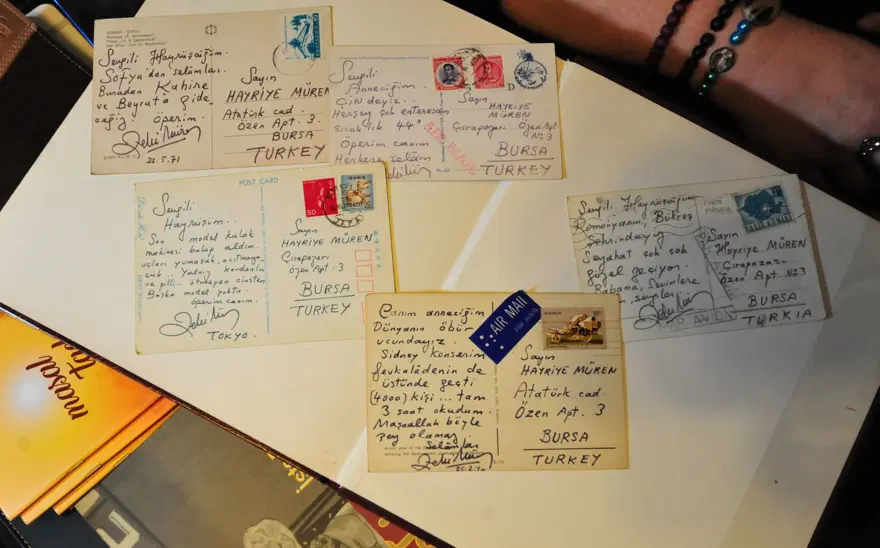 Sevgili Hayrüşçüğüm.
Sofya'dan selâmlar.
Buradan Kahire
ve Beyrut'a gide-
ceğiz. öperim.
Zeki Müren
22.5.71
Sayın
HAYRİYE MÜREN
Atatürk cad.
Özen Apt. 3.
BURSA
TURKEY
Sevgili
Anneciğim.
ÇİN deyiz..
Herşey çok enteresan
Sıcaklık 44°
Öperim canım
Herkese selâm
Zeki Müren
Sayın
HAYRİYE
MÜREN
Çırapazarı Özen Apt
No 3
BURSA
TURKEY
POST CARD
Sevgili
Hayrüşüm..
Son model kulak
makinesi bakıp aldım.
uçları yumuşak,
Yalnız kordonlu
ve pilli... ötmeyen cinsten
Başka model yoktu
öperim canım.
Zeki Müren
TOKYO.
50
Sayın
HAYRİYE MÜREN
Çırapazarı
Özen Apt: 3
BURSA
TURKEY
Sevgili Hayrüşçüğüm
Romanyanın, Bükreş
Şehrindeyiz
Seyahat çok çok
güzel geçiyor.
Babama, Sevinlere
selâmlar
Zeki Müren
PAR AVION
Sayın
Hayriye MÜREN
Çırapazarı
Özen Apt No 3
BURSA
TURKIA
Canım anneciğim
Dünyanın öbür
ucundayız.
Sidney konserim
fevkalâdenin de
üstünde geçti
(4000) kişi... tam
3 saat okudum.
Maşaallah böyle
şey olamaz
Selâmlar
Zeki Müren
AIR MAIL
Sayın
HAYRİYE MÜREN
Atatürk cad.
Özen Apt. 3
BURSA
TURKEY
masal